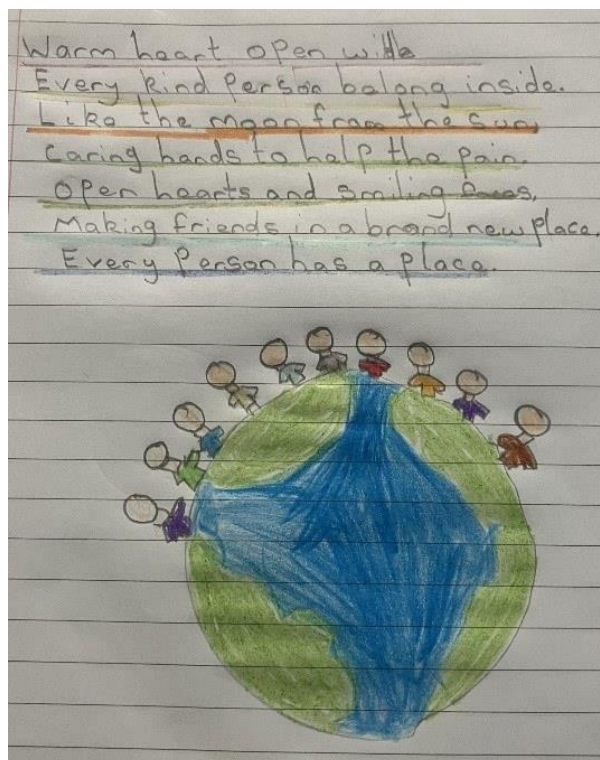 Warm heart open wide
Every kind Person belong inside.
Like the moon from the sun,
Caring hands to help the pain.
Open hearts and smiling faces,
Making friends in a brand new place.
Every Person has a place.